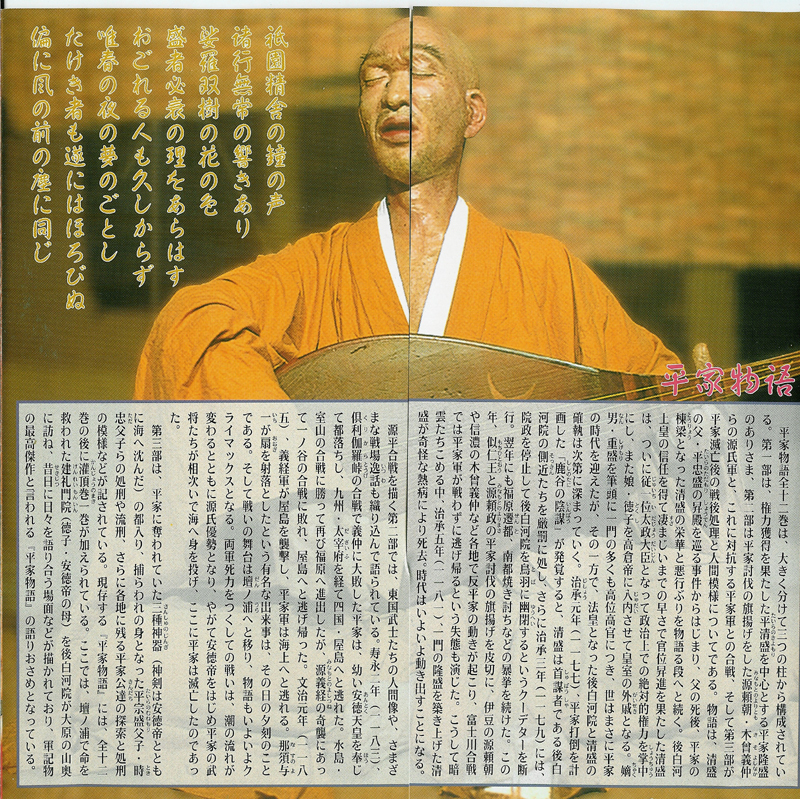 祇園精舎の鐘の声
諸行無常の響きあり
娑羅双樹の花の色
盛者必衰の理をあらはす
おごれる人も久しからず
唯春の夜の夢のごとし
たけき者も遂にはほろびぬ
偏に風の前の塵に同じ
平家物語
平家物語全十二巻は、大きく分けて三つの柱から構成されてい
る。第一部は、権力獲得を果たした平清盛を中心とする平家隆盛
のありさま、第二部は平家討伐の旗揚げをした源頼朝、木曾義仲
らの源氏軍と、これに対抗する平家軍との合戦、そして第三部が
平家滅亡後の戦後処理と人間模様についてである。物語は、清盛
の父、平忠盛の昇殿を巡る事件からはじまり、父の死後、平家の
棟梁となった清盛の栄華と悪行ぶりを物語る段へと続く。後白河
上皇の信任を得て凄まじいまでの早さで官位昇進を果たした清盛
は、ついに従一位太政大臣となって政治上での絶対的権力を掌中
にし、また娘・徳子を高倉帝に入内させて皇室の外戚となる。嫡
男・重盛を筆頭に一門の多くも高位高官につき、世はまさに平家
の時代を迎えたが、その一方で、法皇となった後白河院と清盛の
確執は次第に深まっていく。治承元年(一一七七)、平家打倒を計
画した「鹿谷の陰謀」が発覚すると、清盛は首謀者である後白
河院の側近たちを厳罰に処し、さらに治承三年(一一七九)には、
院政を停止して後白河院を鳥羽に幽閉するというクーデターを断
行。翌年にも福原遷都、南都焼き討ちなどの暴挙を続けた。この
年、以仁王と源頼政の平家討伐の旗揚げを皮切りに、伊豆の源頼朝
や信濃の木曾義仲など各地で反平家の動きが起こり、富士川合戦
では平家軍が戦わずに逃げ帰るという失態も演じた。こうして暗
雲たちこめる中、治承五年(一一八一)、一門の隆盛を築き上げた清
盛が奇怪な熱病により死去。時代はいよいよ動き出すことになる。
源平合戦を描く第二部では、東国武士たちの人間像や、さまざ
まな戦場逸話も織り込んで語られている。寿永二年(一一八三)、
倶利伽羅峠の合戦で義仲に大敗した平家は、幼い安徳天皇を奉じ
て都落ちし、九州・太宰府を経て四国・屋島へと逃れた。水島・
室山の合戦に勝って再び福原へ進出したが、源義経の奇襲にあっ
て一ノ谷の合戦に敗れ、屋島へと逃げ帰った。文治元年(一一八
五)、義経軍が屋島を襲撃し、平家軍は海上へと逃れる。那須与
一が扇を射落としたという有名な出来事は、その日の夕刻のこと
である。そして戦いの舞台は壇ノ浦へと移り、物語もいよいよク
ライマックスとなる。両軍死力をつくしての戦いは、潮の流れが
変わるとともに源氏優勢となり、やがて安徳帝をはじめ平家の武
将たちが相次いで海へ身を投げ、ここに平家は滅亡したのであっ
た。
第三部は、平家に奪われていた三種神器(神剣は安徳帝ととも
に海へ沈んだ)の都入り、捕らわれの身となった平宗盛父子・時
忠父子らの処刑や流刑、さらに各地に残る平家公達の探索と処刑
の模様などが記されている。現存する『平家物語』には、全十二
巻の後に灌頂巻一巻が加えられている。ここでは、壇ノ浦で命を
救われた建礼門院(徳子・安徳帝の母)を後白河院が大原の山奥
に訪ね、昔日に日々を語り合う場面などが描かれており、軍記物
の最高傑作と言われる『平家物語』の語りおさめとなっている。